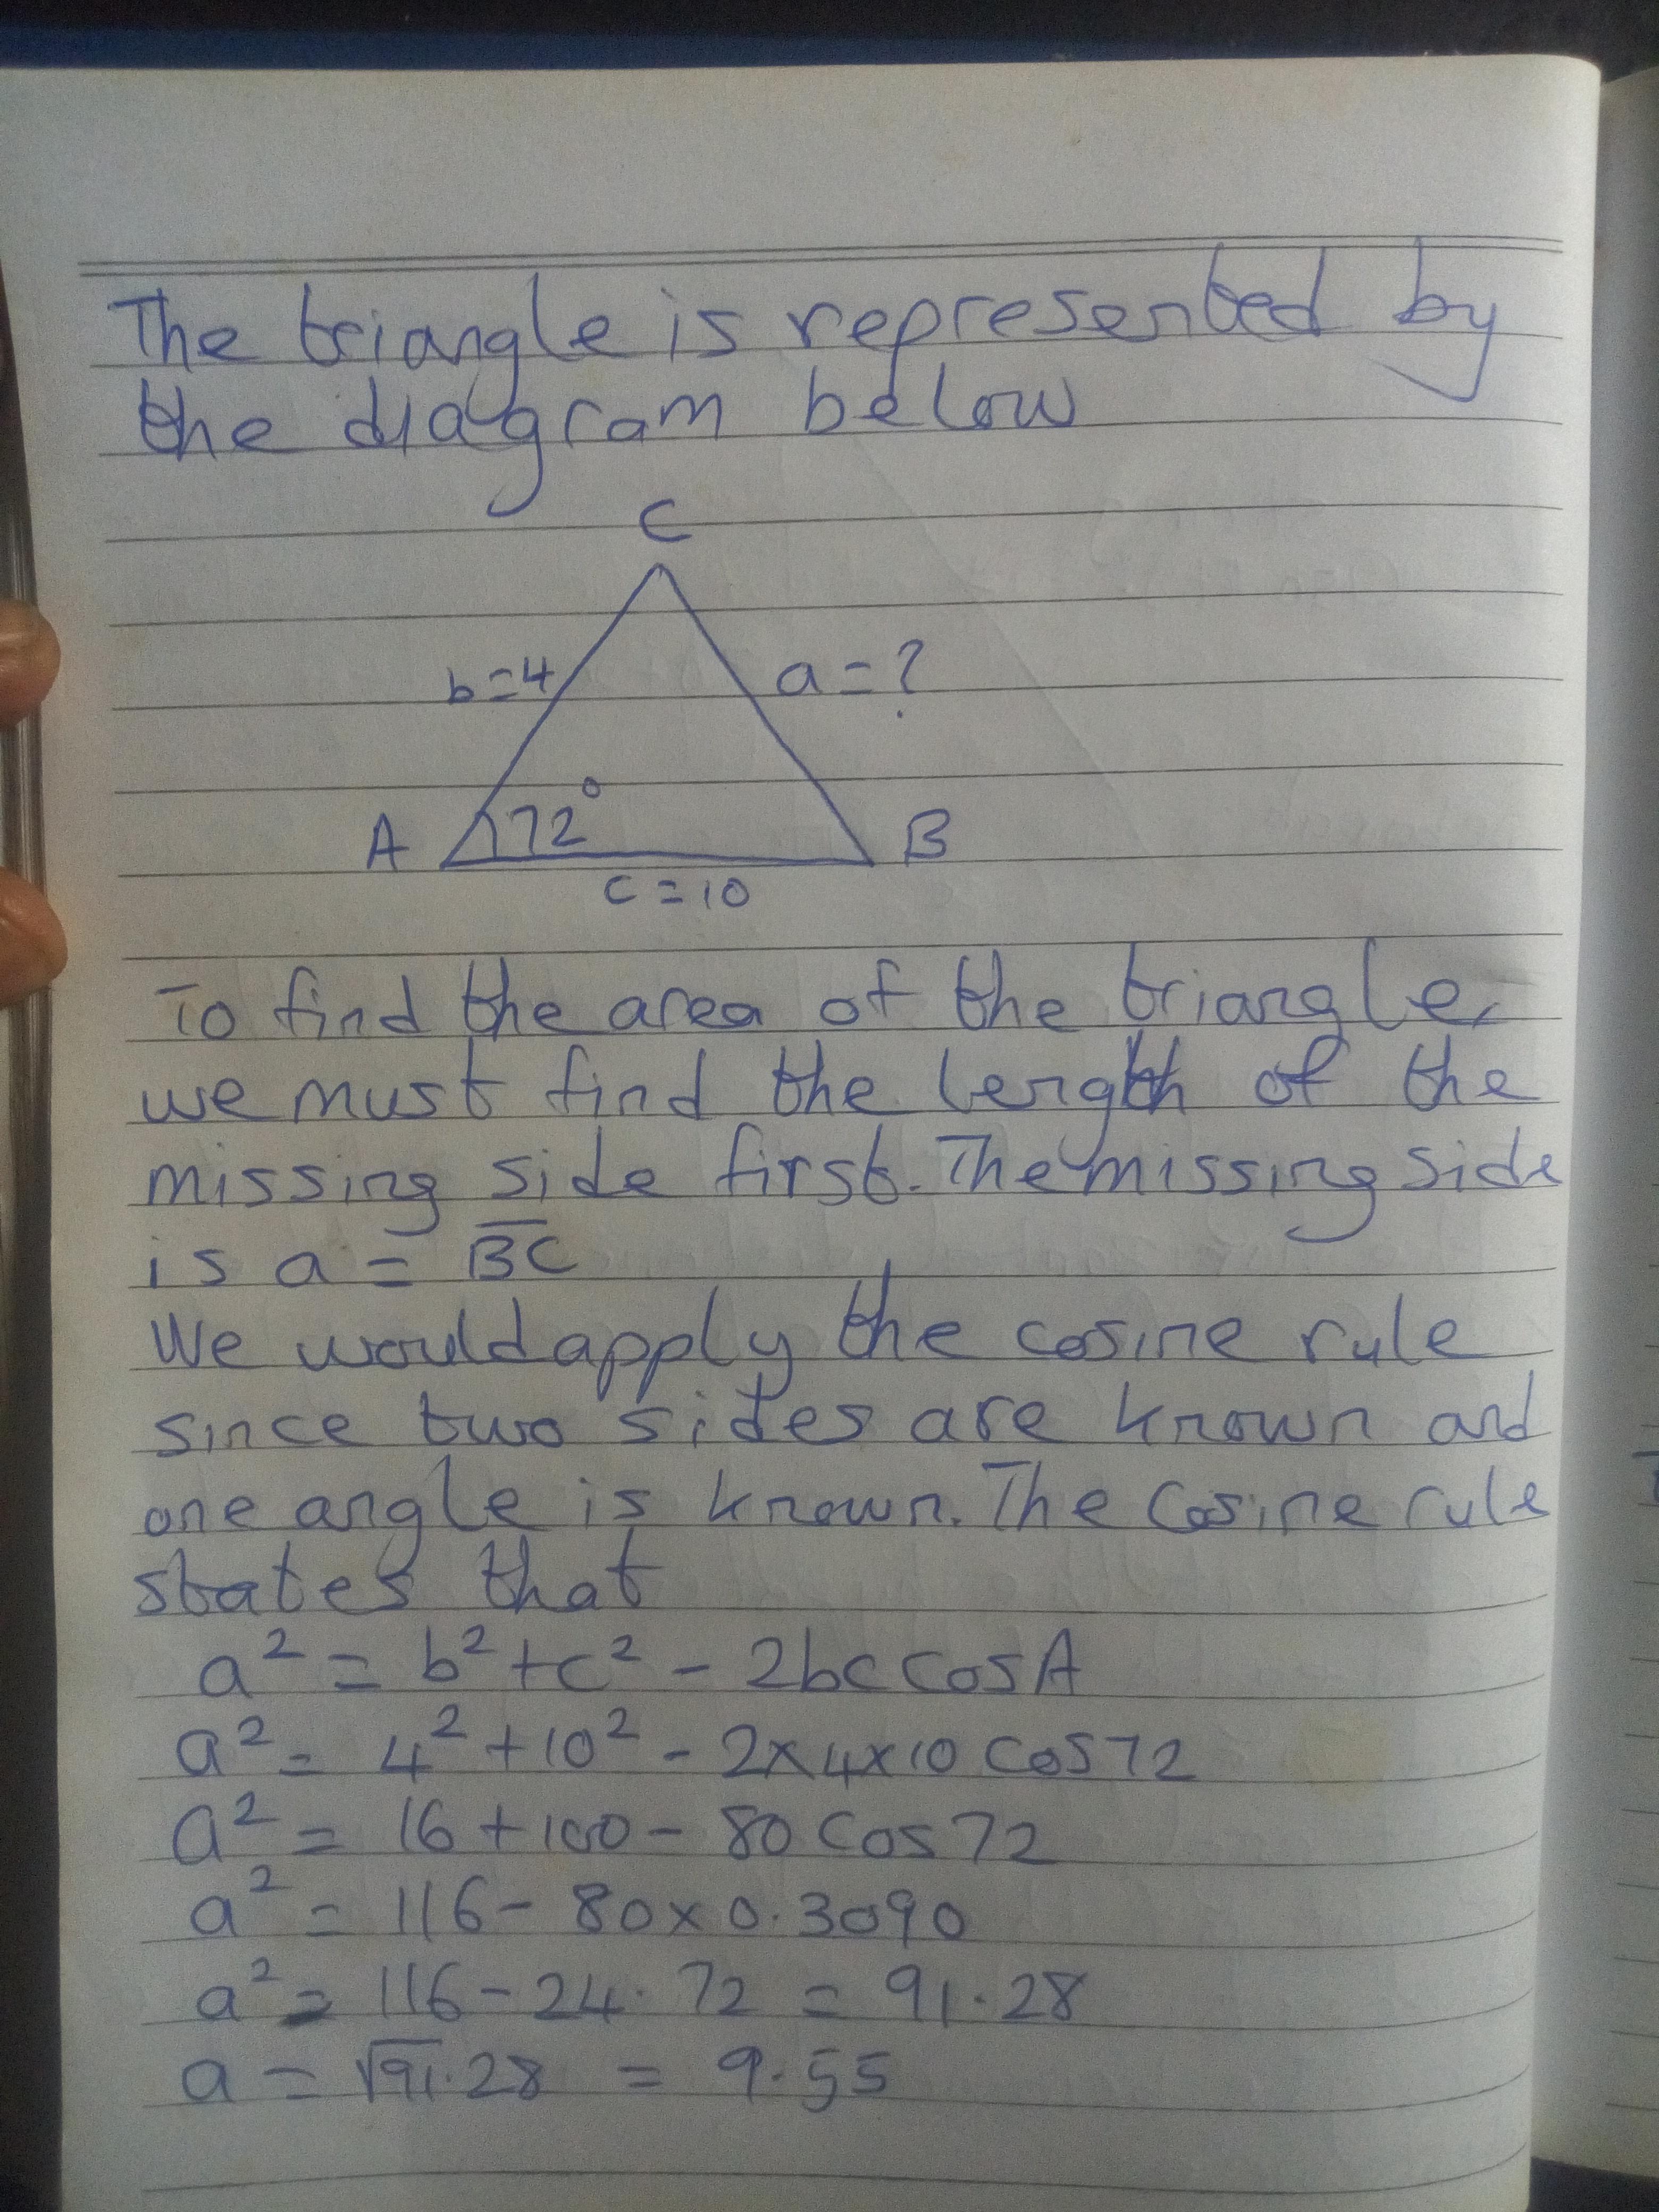 The triangle is represented by
the diagram below
C
b=4
a=?
A
72°
B
c=10
To find the area of the triangle,
we must find the length of the
missing side first. The missing side
is a = B̅C̅
We would apply the cosine rule
since two sides are known and
one angle is known. The cosine rule
states that
a² = b² + c² - 2bc cos A
a² = 4² + 10² - 2×4×10 cos 72
a² = 16 + 100 - 80 cos 72
a² = 116 - 80 × 0.3090
a² = 116 - 24.72 = 91.28
a = √91.28 = 9.55